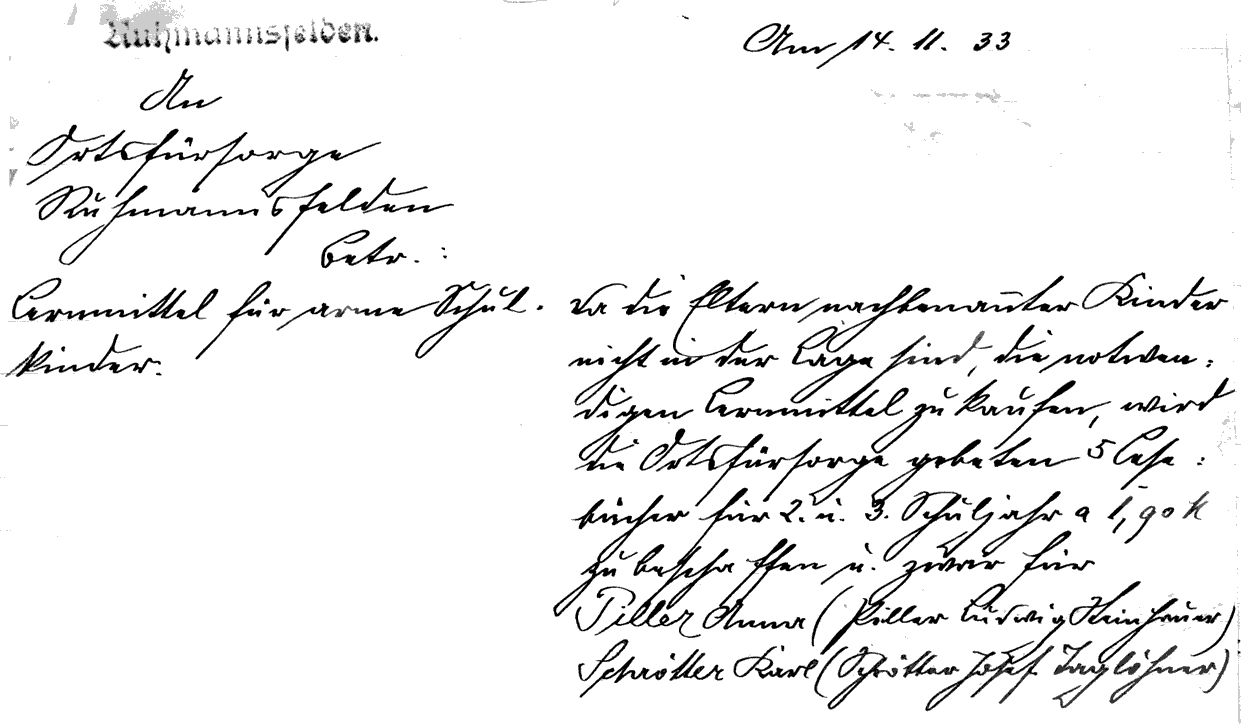 Ruhmannsfelden.
Am 14. 11. 33
An
Ortsfürsorge
Ruhmannsfelden
Betr. :
Lernmittel für arme Schul-
kinder.
Da die Eltern nachbenannter Kinder
nicht in der Lage sind, die notwen:
digen Lernmittel zu kaufen, wird
die Ortsfürsorge gebeten 5 Lese:
bücher für 2. u. 3. Schuljahr a 1,90 M
zu beschaffen u. zwar für
Piller Anna (Piller Ludwig Steinhauer)
Schrötter Karl (Schrötter Josef Taglöhner)